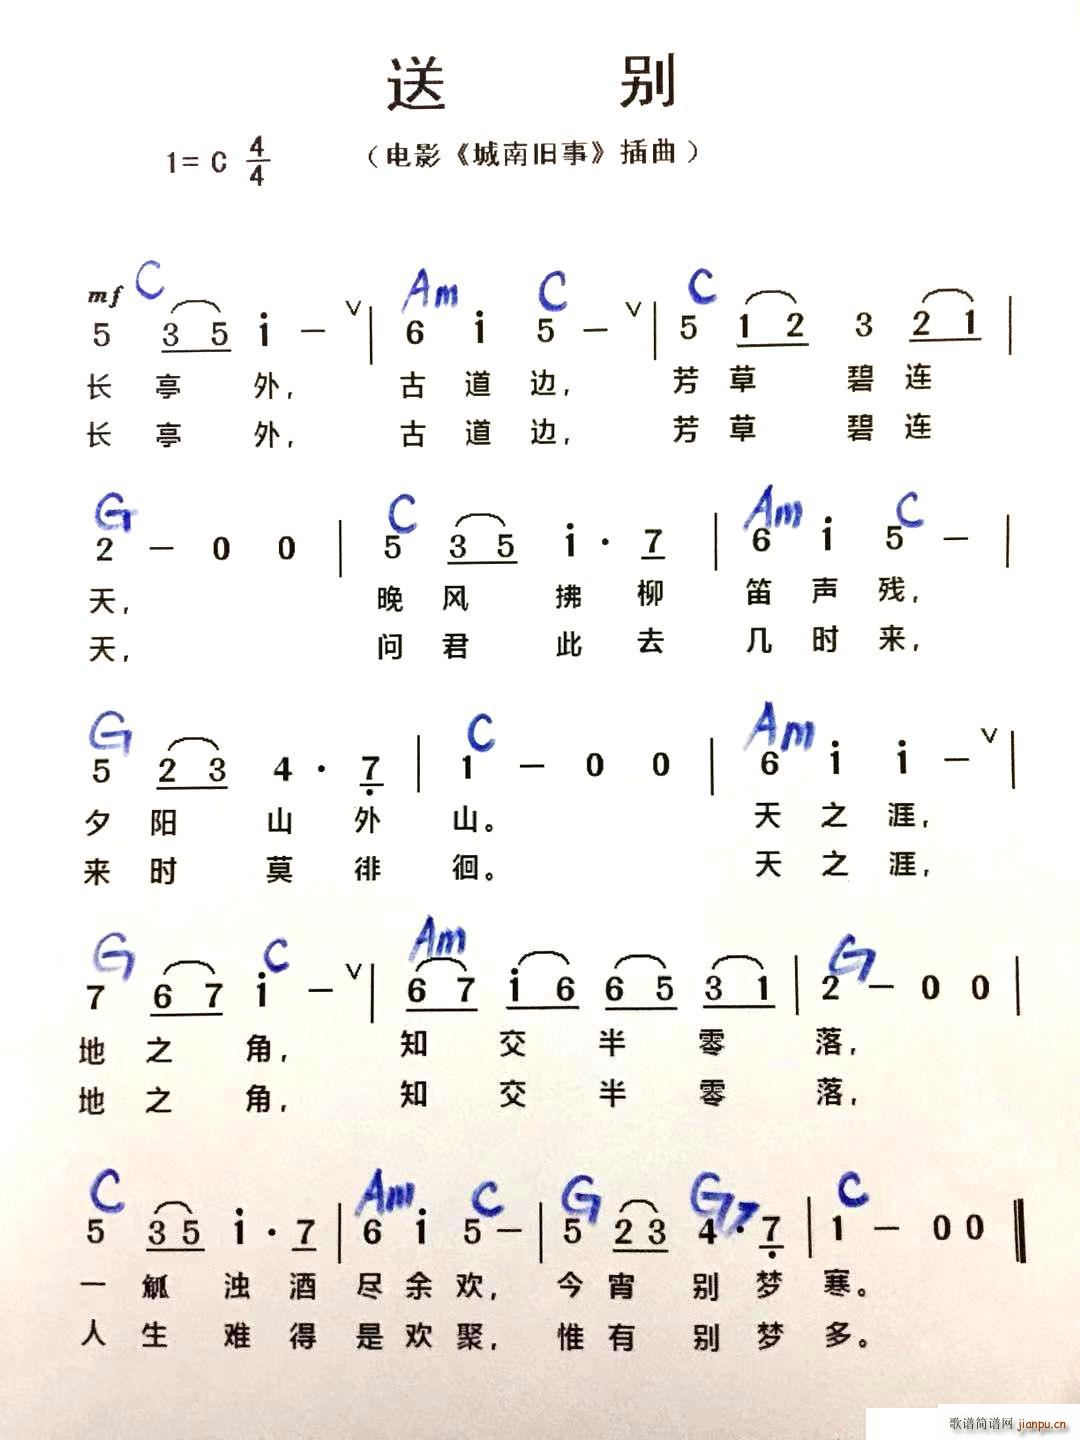 送 别
1=C 4/4 （电影《城南旧事》插曲）
mf C Am C C
5 3 5 i － ∨ | 6 i 5 － ∨ | 5 1 2 3 2 1 |
长 亭 外， 古 道 边， 芳 草 碧 连
长 亭 外， 古 道 边， 芳 草 碧 连
G C Am C
2 － 0 0 | 5 3 5 i · 7 | 6 i 5 － |
天， 晚 风 拂 柳 笛 声 残，
天， 问 君 此 去 几 时 来，
G C Am
5 2 3 4 · 7 | 1 － 0 0 | 6 i i － ∨ |
夕 阳 山 外 山。 天 之 涯，
来 时 莫 徘 徊。 天 之 涯，
G C Am G
7 6 7 i － ∨ | 6 7 i 6 6 5 3 1 | 2 － 0 0 |
地 之 角， 知 交 半 零 落，
地 之 角， 知 交 半 零 落，
C Am C G G7 C
5 3 5 i · 7 | 6 i 5 － | 5 2 3 4 · 7 | 1 － 0 0 ‖
一 觚 浊 酒 尽 余 欢， 今 宵 别 梦 寒。
人 生 难 得 是 欢 聚， 惟 有 别 梦 多。
歌谱简谱网 jianpu.cn